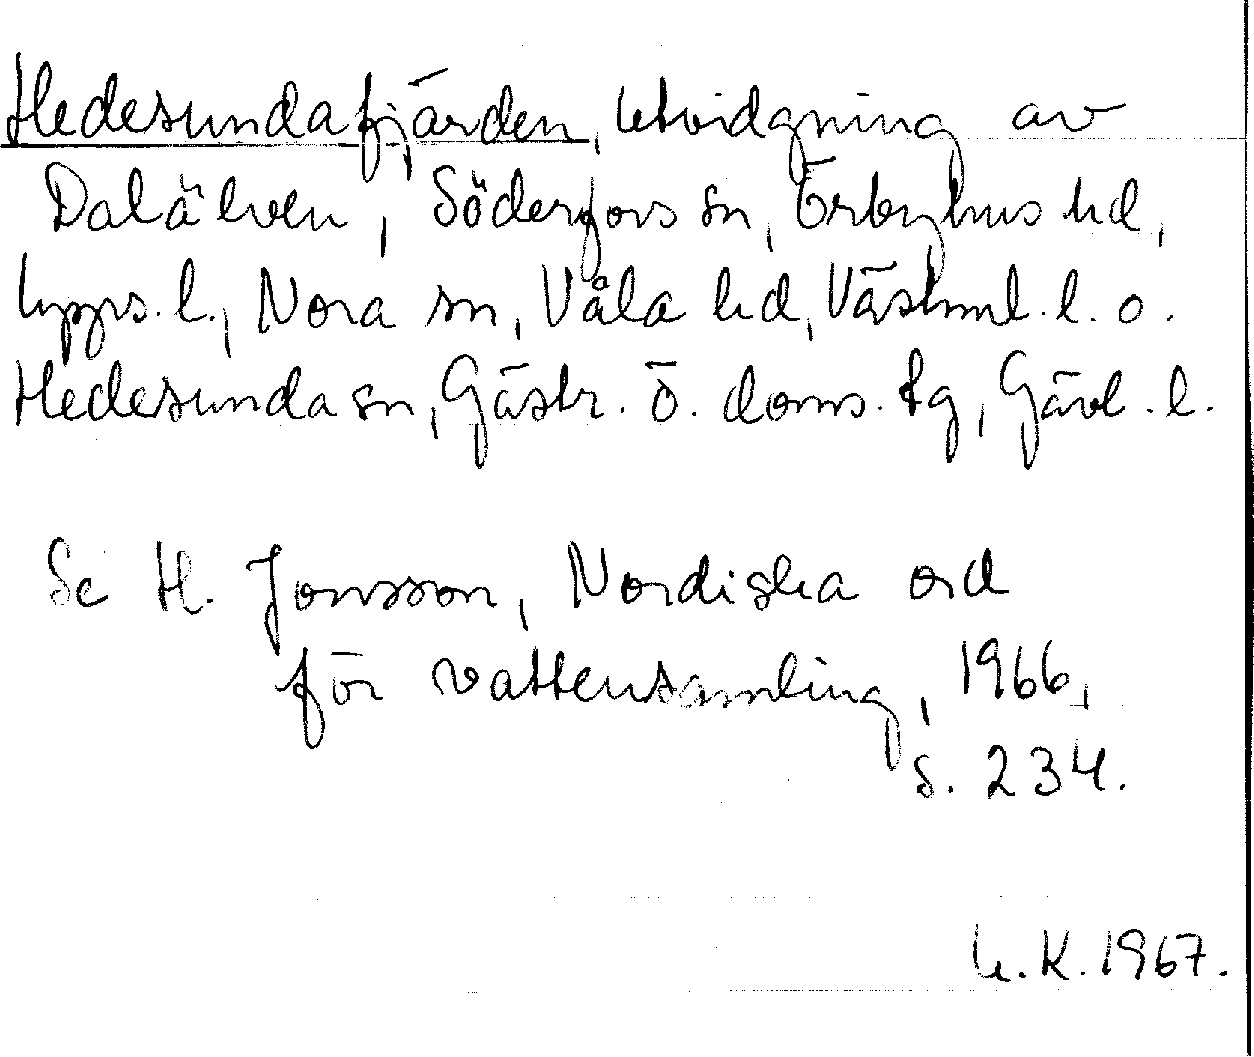 Hedesundafjärden, utvidgning av
Dalälven, Söderfors sn, Örbyhus hd,
Upps. l., Nora sn, Våla hd, Västml. l. o.
Hedesunda sn, Gästr. ö. doms. tg, Gävl. l.
Se H. Jonsson, Nordiska ord
för vattensamling, 1966,
s. 234.
U. K. 1967.